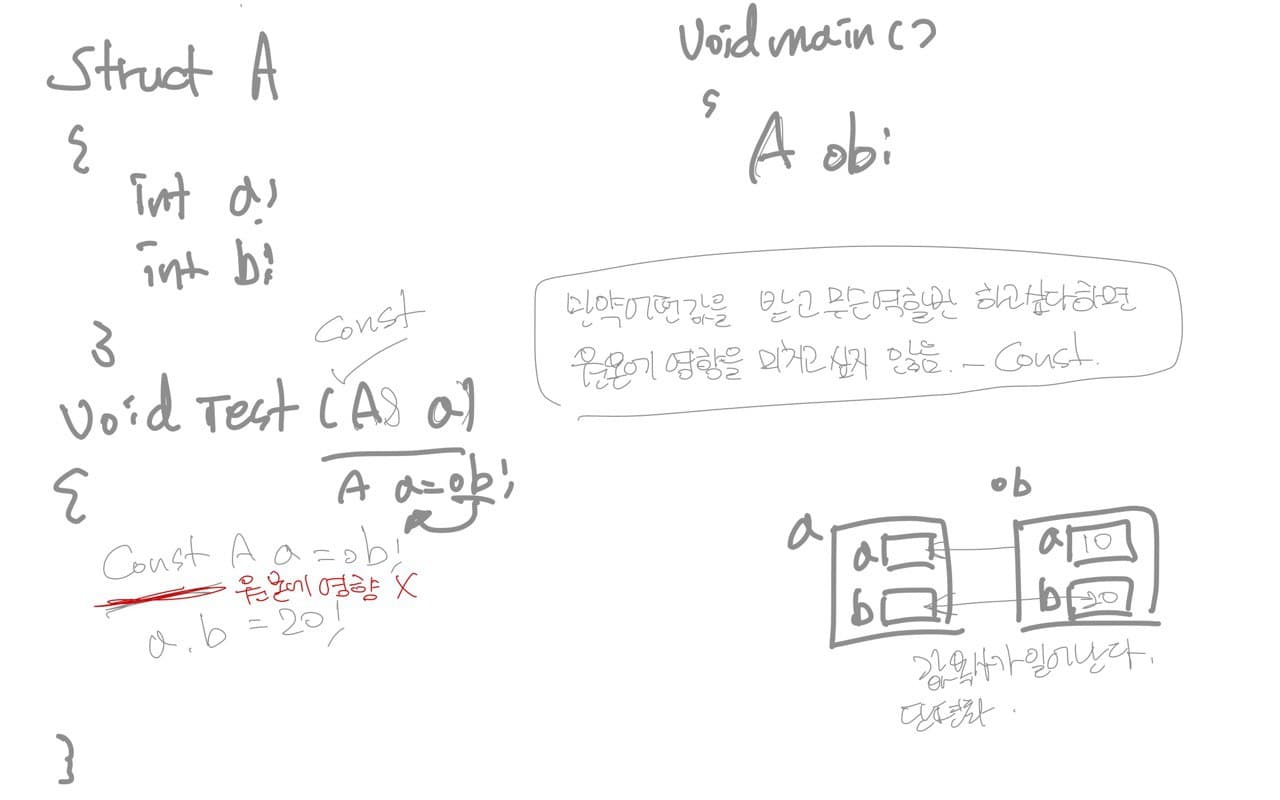 Struct A
{
int a;
int b;
}
const
Void Test (A& a)
{
A a=ob;
Const A a = ob;
원본에 영향 X
a.b = 20;
}
Void main()
{
A ob;
만약 어떤값을 받고 무슨역할만 하고싶다하면
원본에 영향을 미치고 싶지 않음. - Const.
ob
a
a
a 10
b
b 20
값복사가 일어난다.
단편화.